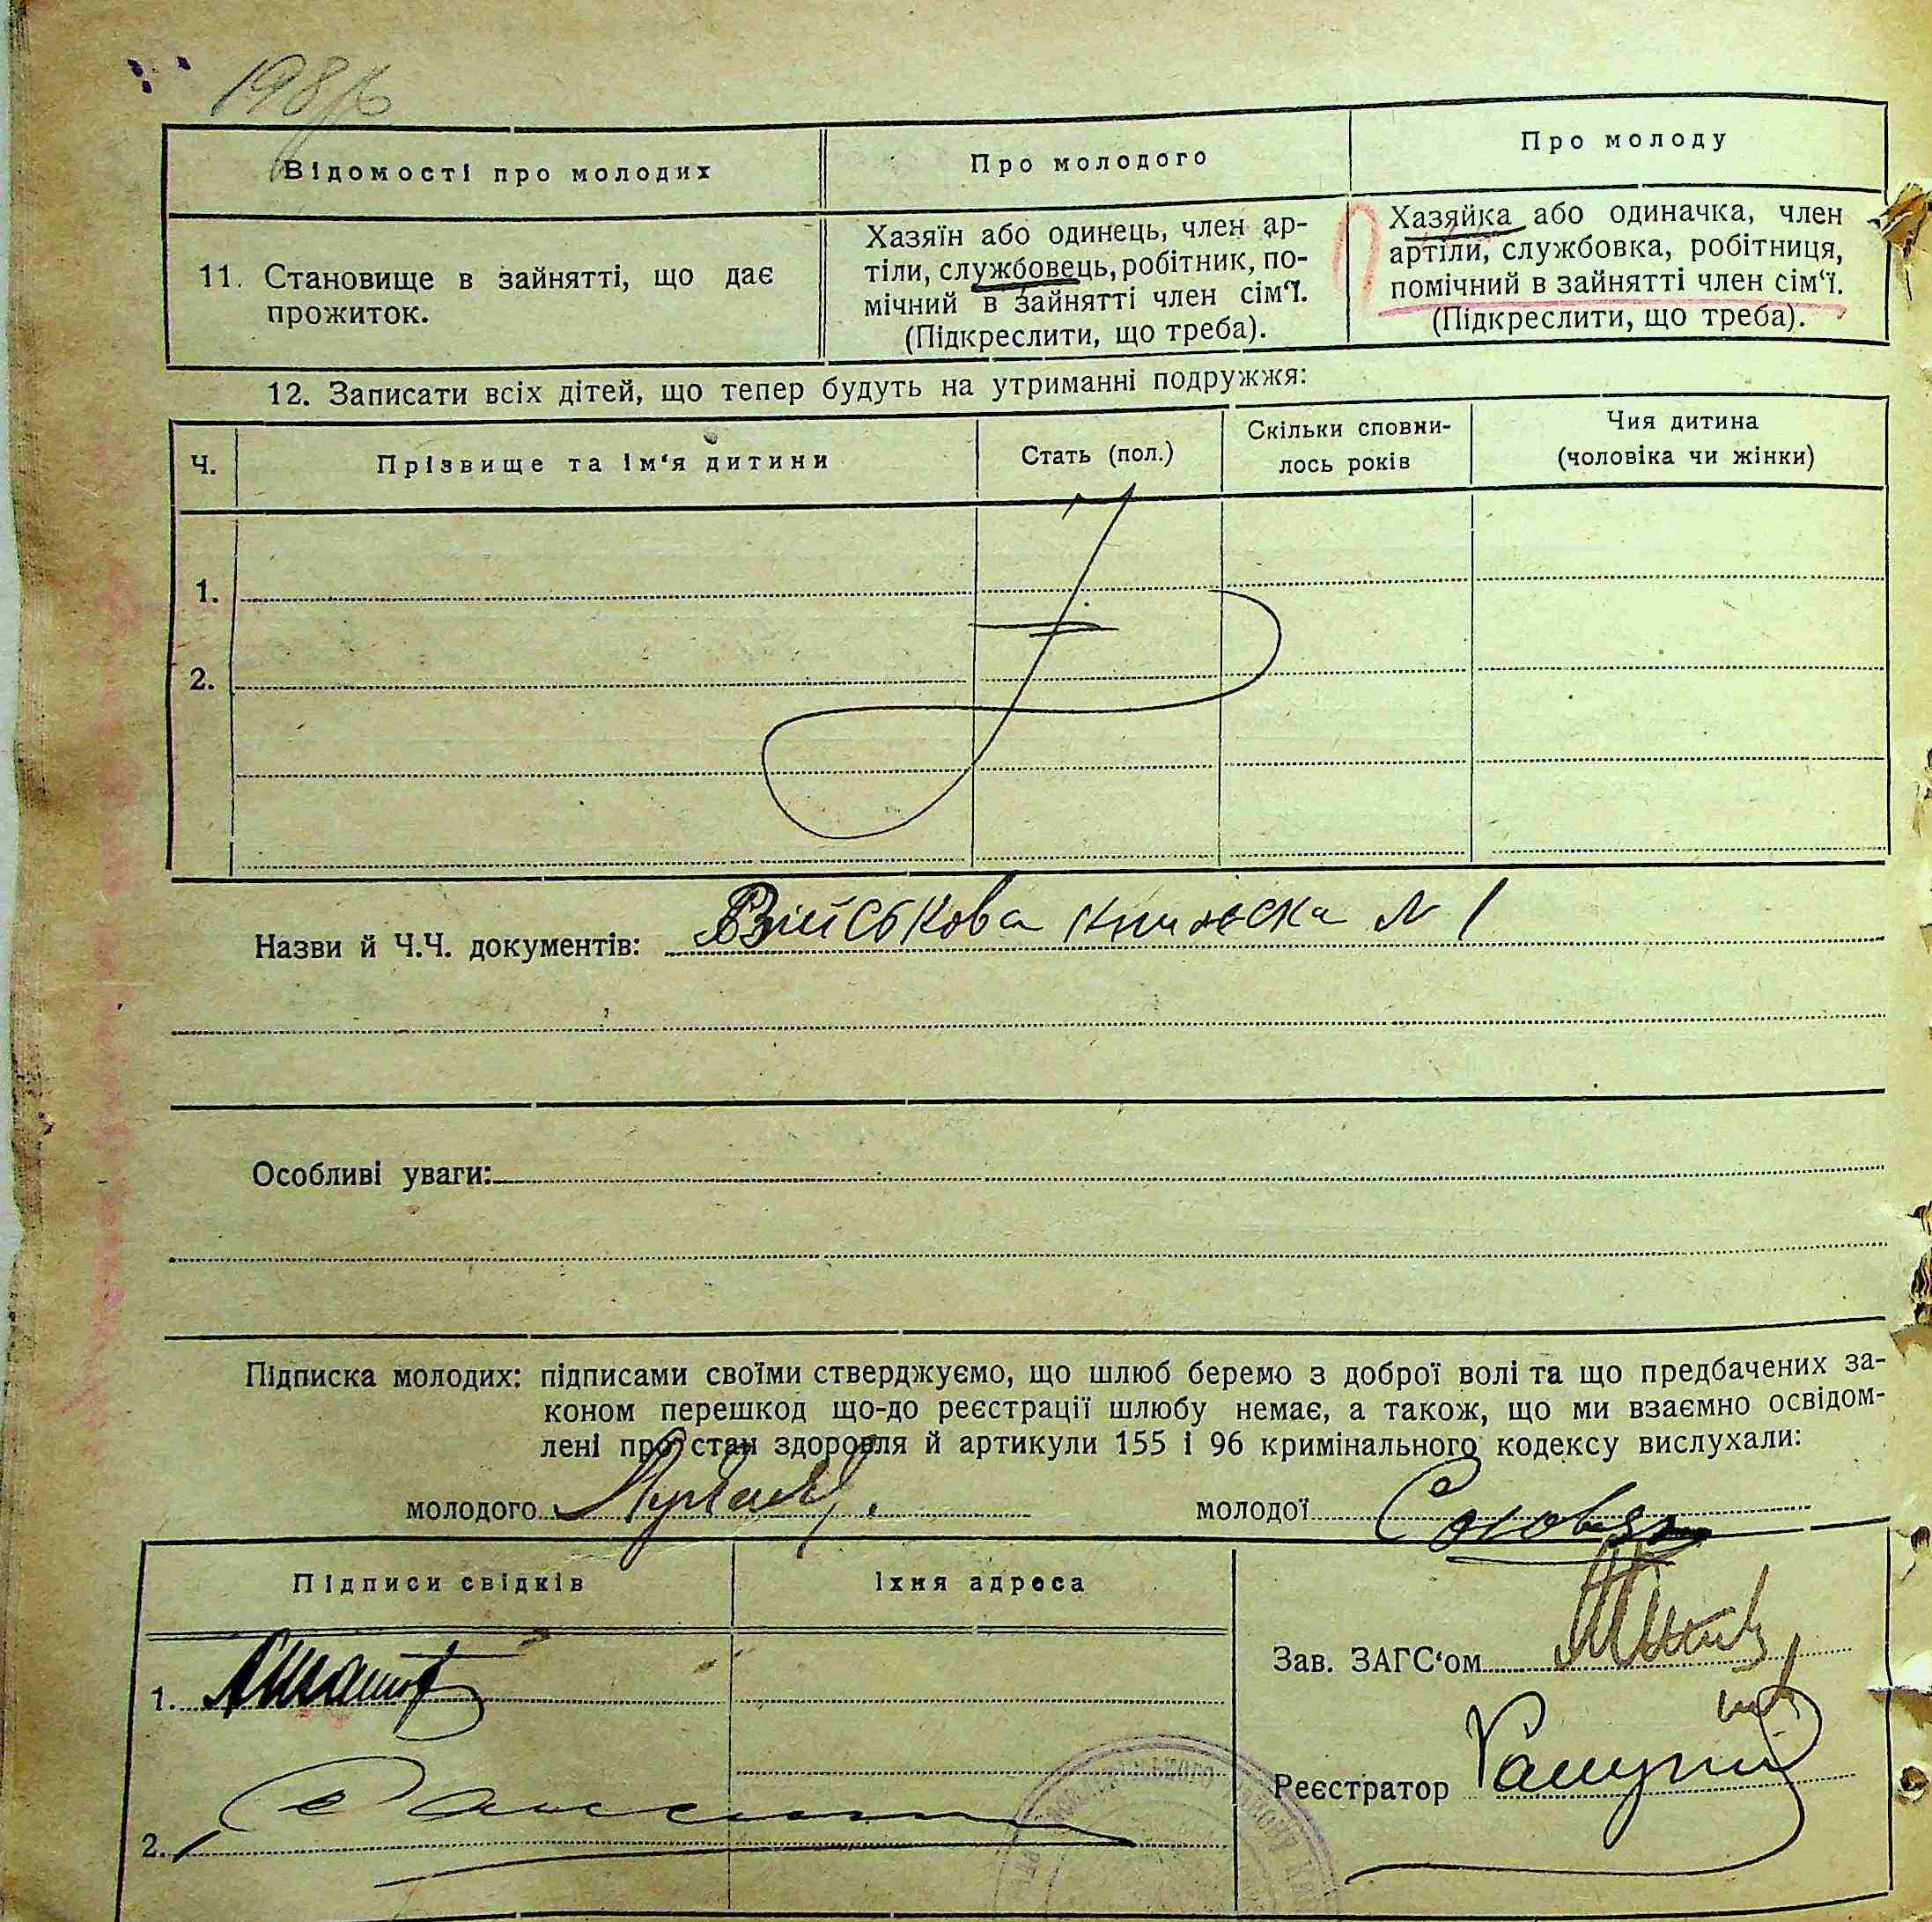 198/6
Відомості про молодих
Про молодого
Про молоду
11. Становище в зайнятті, що дає
прожиток.
Хазяїн або одинець, член ар-
тіли, службовець, робітник, по-
мічний в зайнятті член сім'ї.
(Підкреслити, що треба).
Хазяйка або одиначка, член
артіли, службовка, робітниця,
помічний в зайнятті член сім'ї.
(Підкреслити, що треба).
12. Записати всіх дітей, що тепер будуть на утриманні подружжя:
Ч.
Прізвище та ім'я дитини
Стать (пол.)
Скільки сповни-
лось років
Чия дитина
(чоловіка чи жінки)
1.
2.
Назви й Ч.Ч. документів: Військова книжска N 1
Особливі уваги:
Підписка молодих: підписами своїми стверджуємо, що шлюб беремо з доброї волі та що предбачених за-
коном перешкод що-до реєстрації шлюбу немає, а також, що ми взаємно освідом-
лені про стан здоровля й артикули 155 і 96 кримінального кодексу вислухали:
молодого
молодої
Підписи свідків
Їхня адреса
1.
2.
Зав. ЗАГС'ом
Реєстратор